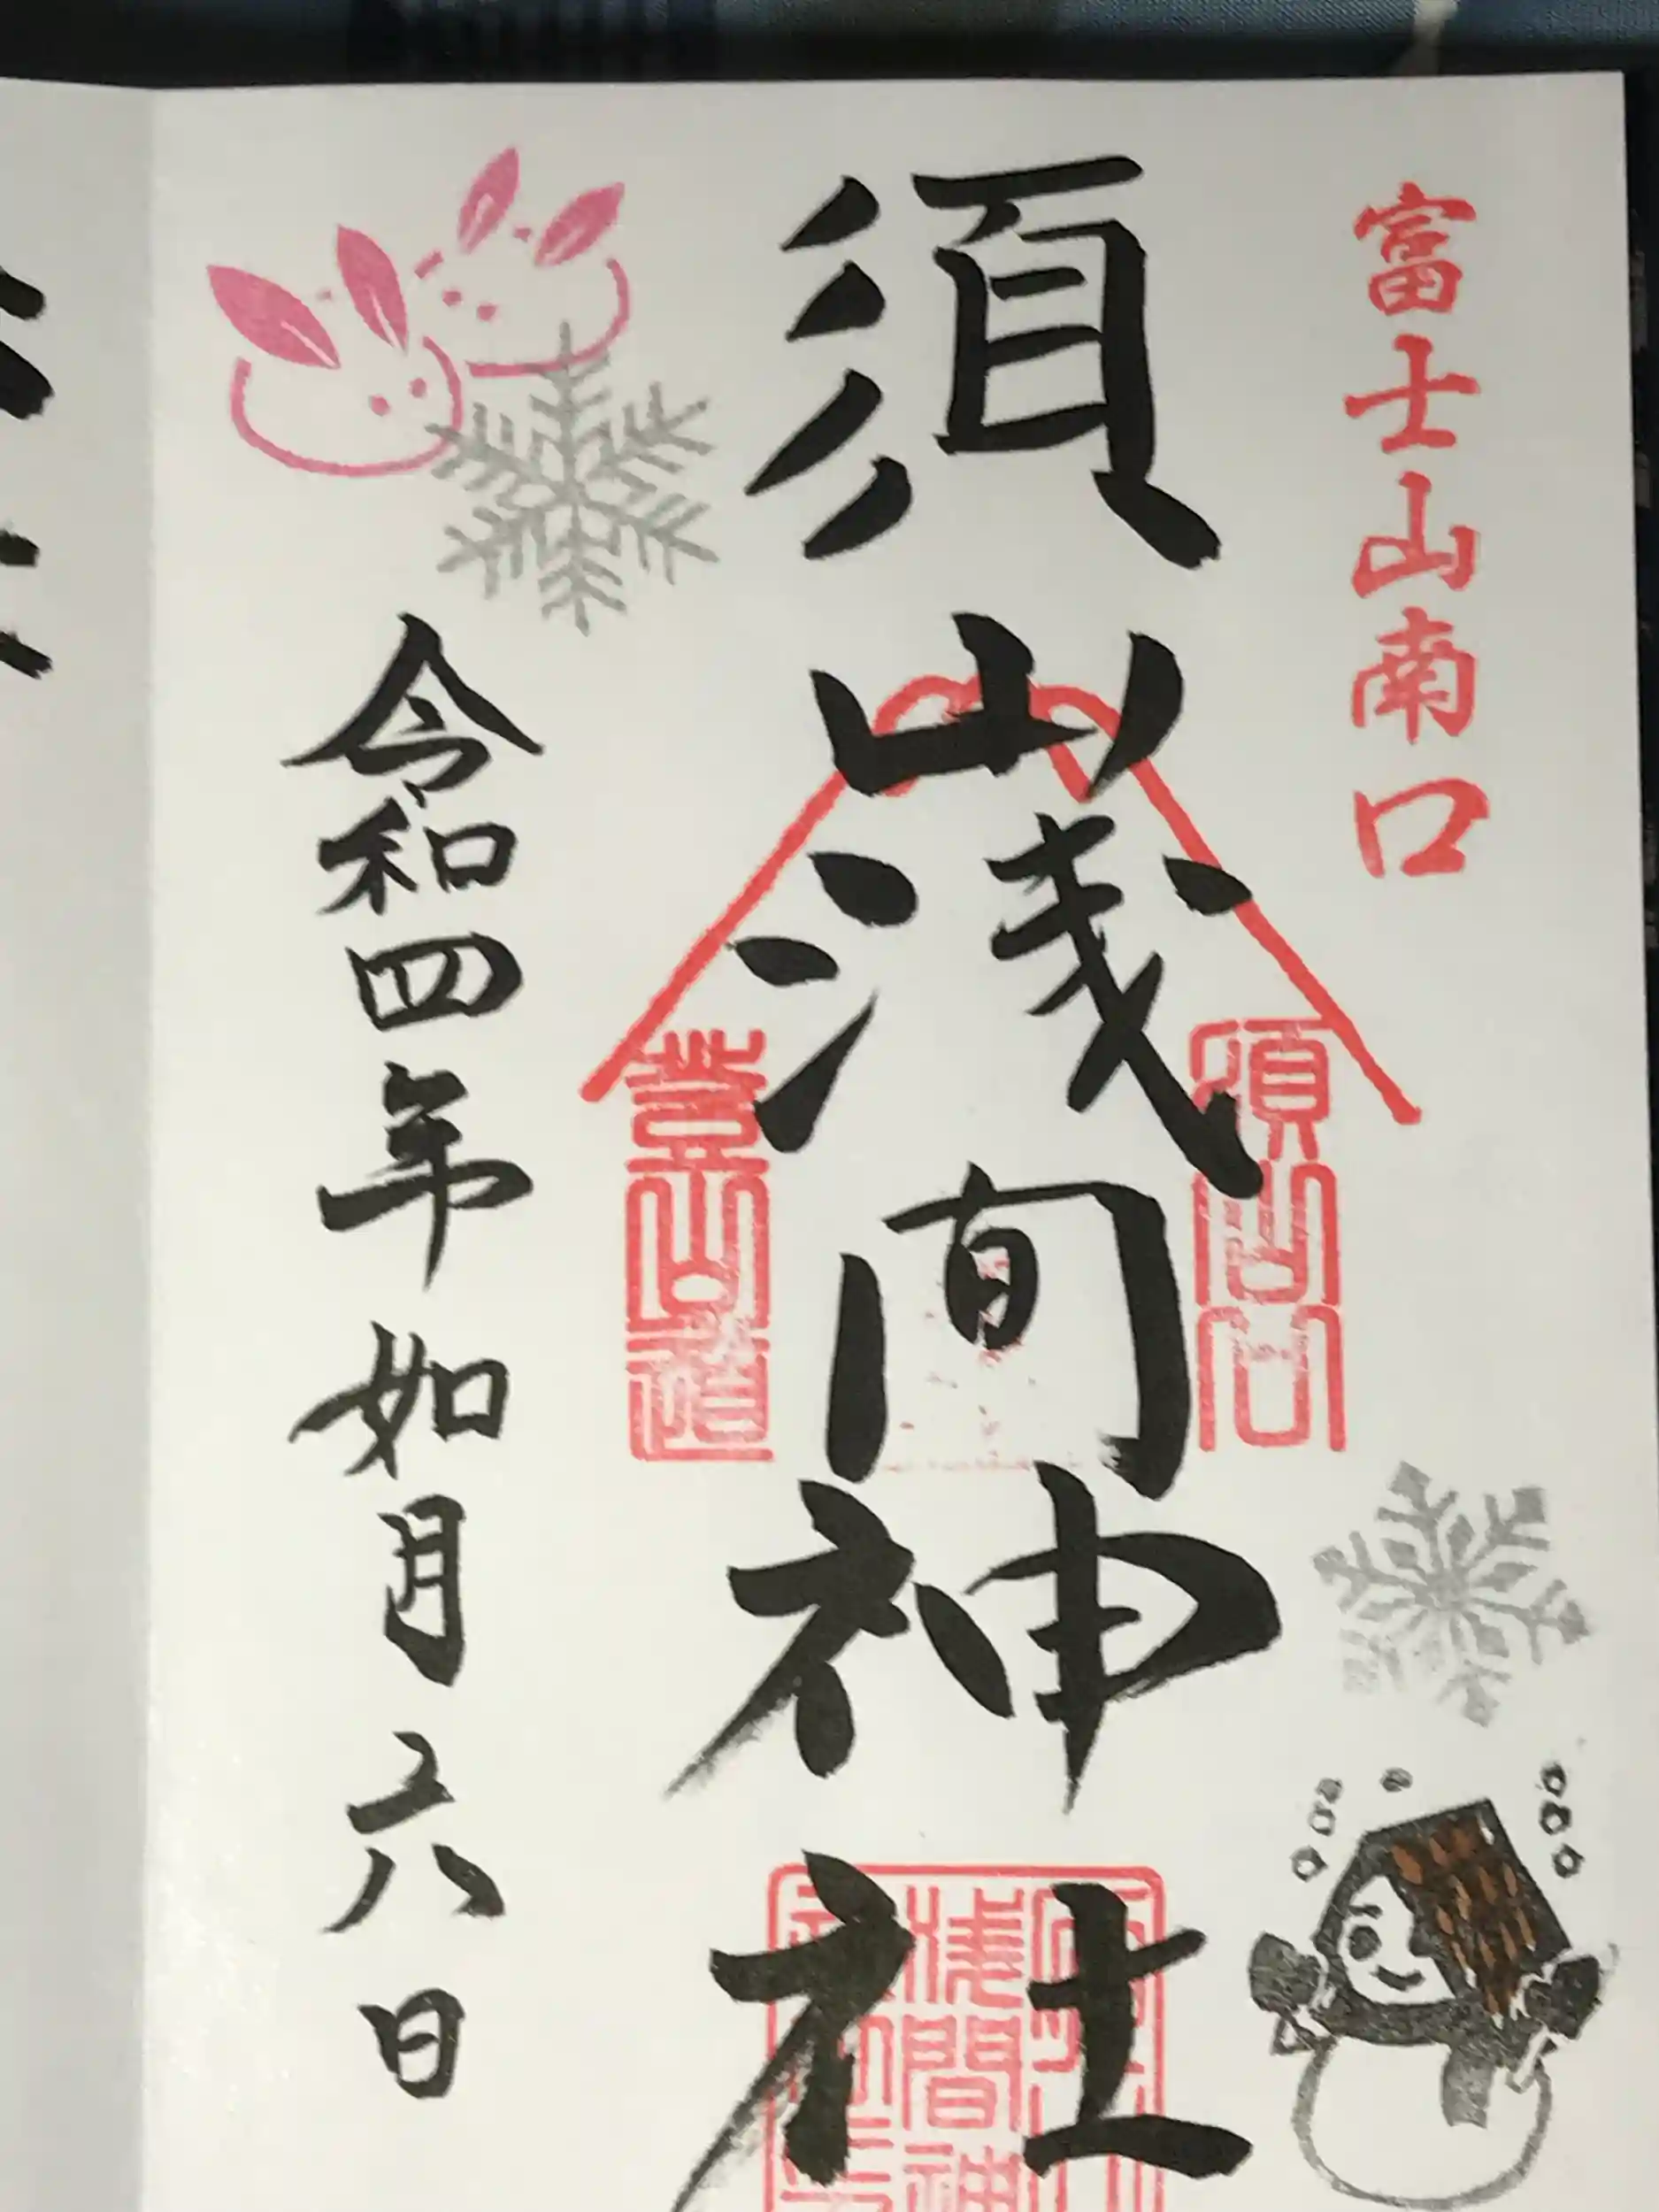 富士山南口
須山浅間神社
須山口
登山道
令和四年如月六日